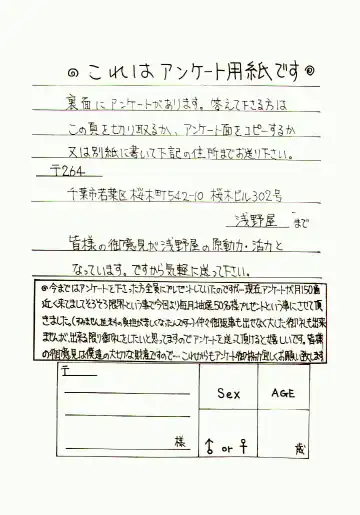 ◎ これは アンケート用紙です ◎
裏面にアンケートがあります。答えて下さる方は
この頁を切り取るか、アンケート面をコピーするか
又は別紙に書いて下記の住所までお送り下さい。
〒264
千葉市若葉区桜木町542-10 桜木ビル302号
浅野屋 まで
皆様の御意見が浅野屋の原動力・活力と
なっています。ですから気軽に送って下さい。
◎今まではアンケートを下さった方全員にプレゼントしていたのですが…現在アンケートが月150通
近く来てましてそろそろ限界という事で今日より毎月抽選50名様プレゼントという事にさせて頂
きました。(すみません
仲々御返事も出せなく大した御礼も出来
ませんが、出来る限り御中をしたいと思ってますのでアンケートを送って頂けると嬉しいです。皆様
の御意見は僕達の大切な財産ですので…これからもアンケート御協力宜しくお願い致します
〒
様
Sex
♂ or ♀
AGE
歳